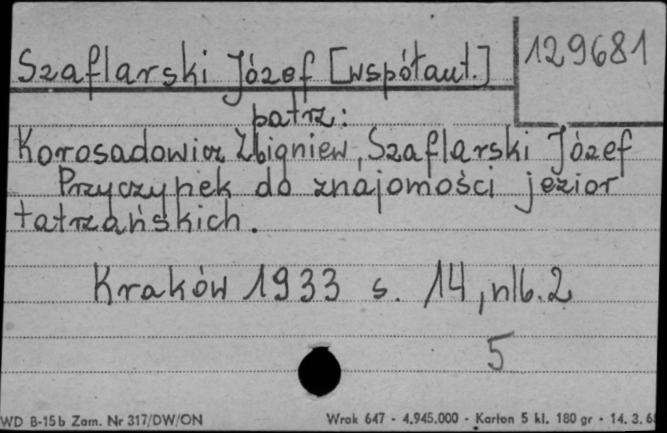 Szaflarski Józef [współaut.]
129681
patrz:
Korosadowicz Zbigniew, Szaflarski Józef
Przyczynek do znajomości jezior
tatrzańskich.
Kraków 1933 s. 14, nlb. 2
5
WD B-15b Zam. Nr 317/DW/ON
Wrok 647 - 4.945.000 - Karton 5 kl. 180 gr - 14. 3.